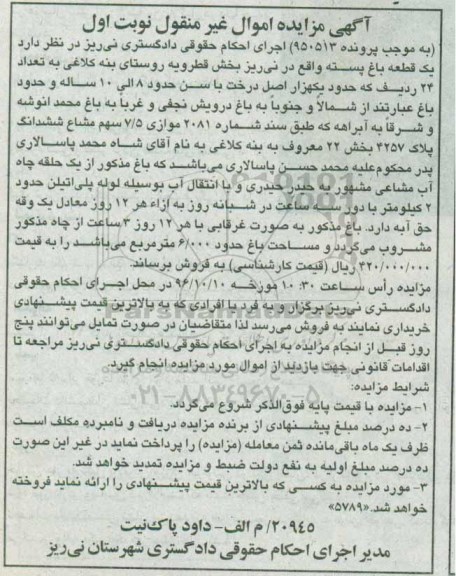 آگهی مزایده اموال غیر منقول نوبت اول
(به موجب پرونده ۹۵۰۵۱۳) اجرای احکام حقوقی دادگستری نی‌ریز در نظر دارد
یک قطعه باغ پسته واقع در نی‌ریز بخش قطرویه روستای بنه کلاغی به تعداد
۲۴ ردیف که حدود یکهزار اصل درخت با سن حدود ۸ الی ۱۰ ساله و حدود
باغ عبارتند از شمالاً و جنوباً به باغ درویش نجفی و غرباً به باغ محمد انوشه
و شرقاً به آبراهه که طبق سند شماره ۲۰۸۱ موازی ۷/۵ سهم مشاع ششدانگ
پلاک ۴۲۵۷ بخش ۲۲ معروف به بنه کلاغی به نام آقای شاه محمد پاسالاری
پدر محکوم‌علیه محمد حسن پاسالاری می‌باشد که باغ مذکور از یک حلقه چاه
آب مشاعی مشهور به حیدر حیدری و با انتقال آب بوسیله لوله پلی‌اتیلن حدود
۲ کیلومتر با دور سه ساعت در شبانه روز به ازاء هر ۱۲ روز معادل یک وقه
حق آبه دارد. باغ مذکور به صورت غرقابی با هر ۱۲ روز ۳ ساعت از چاه مذکور
مشروب می‌گردد و مساحت باغ حدود ۶/۰۰۰ مترمربع می‌باشد را به قیمت
۴۲۰/۰۰۰/۰۰۰ ریال (قیمت کارشناسی) به فروش برساند.
مزایده رأس ساعت ۱۰:۳۰ مورخه ۹۶/۱۰/۱۰ در محل اجرای احکام حقوقی
دادگستری نی‌ریز برگزار و به فرد یا افرادی که به بالاترین قیمت پیشنهادی
خریداری نمایند به فروش می‌رسد لذا متقاضیان در صورت تمایل می‌توانند پنج
روز قبل از انجام مزایده به اجرای احکام حقوقی دادگستری نی‌ریز مراجعه تا
اقدامات قانونی جهت بازدید از اموال مورد مزایده انجام گیرد.
شرایط مزایده:
۱- مزایده با قیمت پایه فوق‌الذکر شروع می‌گردد.
۲- ده درصد مبلغ پیشنهادی از برنده مزایده دریافت و نامبرده مکلف است
ظرف یک ماه باقی‌مانده ثمن معامله (مزایده) را پرداخت نماید در غیر این صورت
ده درصد مبلغ اولیه به نفع دولت ضبط و مزایده تمدید خواهد شد.
۳- مورد مزایده به کسی که بالاترین قیمت پیشنهادی را ارائه نماید فروخته
خواهد شد.«۵۷۸۹»
۲۰۹۴۵/ م الف- داود پاک‌نیت
مدیر اجرای احکام حقوقی دادگستری شهرستان نی‌ریز
ParsNamadData
۰۲۱-۸۸۳۴۹۶۷۰-۵